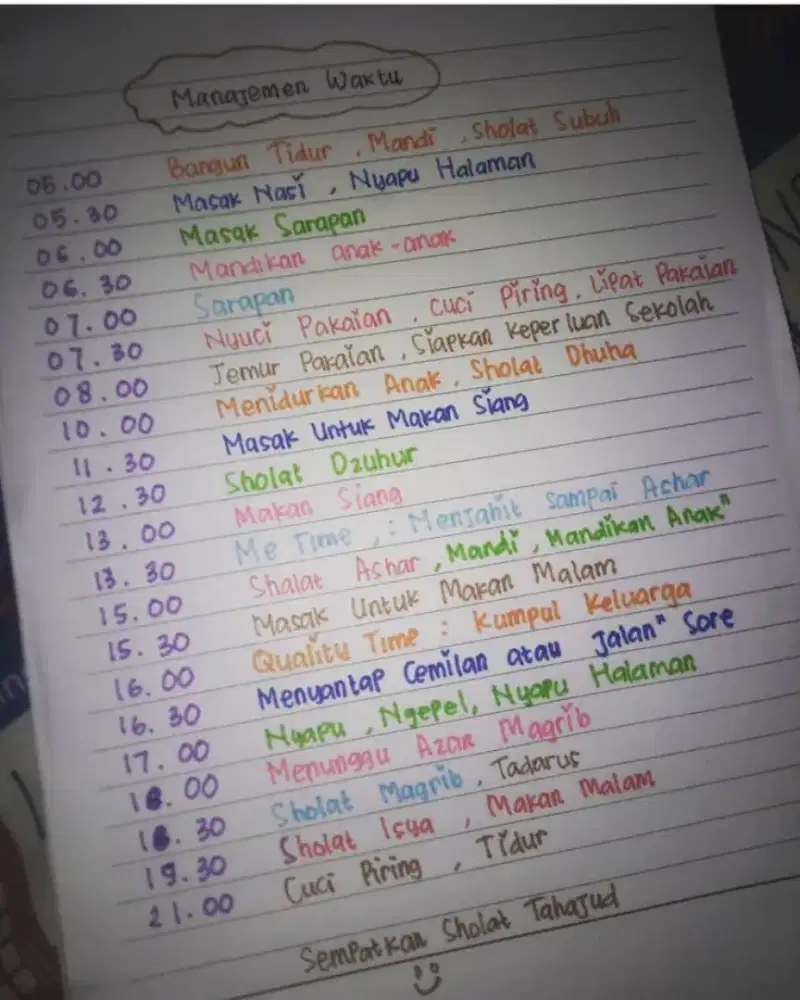 Manajemen Waktu
05.00 Bangun Tidur, Mandi, Sholat Subuh
05.30 Masak Nasi, Nyapu Halaman
06.00 Masak Sarapan
06.30 Mandikan anak-anak
07.00 Sarapan
07.30 Nyuci Pakaian, Cuci Piring, Lipat Pakaian
08.00 Jemur Pakaian, Siapkan Keperluan Sekolah
10.00 Menidurkan Anak, Sholat Dhuha
11.30 Masak Untuk Makan Siang
12.30 Sholat Dzuhur
13.00 Makan Siang
13.30 Me Time,: Menjahit Sampai Achar
15.00 Shalat Ashar, Mandi, Mandikan Anak"
15.30 Masak Untuk Makan Malam
16.00 Quality Time : Kumpul Keluarga
16.30 Menyantap Cemilan atau Jalan" Sore
17.00 Nyapu, Ngepel, Nyapu Halaman
18.00 Menunggu Azan Magrib
18.30 Sholat Magrib, Tadarus
19.30 Sholat Isya, Makan Malam
21.00 Cuci Piring, Tidur
Sempatkan Sholat Tahajud